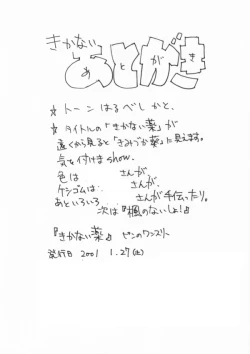 きかない
あとがき
☆ トーンはるべしかと、
☆ タイトルの「きかない薬」が
遠くから見ると「きみづか葵」に見えます。
気を付けま show.
色は　　　さんが
ケシゴムは　　　さんが、
あといろいろ　　　さんが手伝ったり。
次は『楓のないしょ!』
『きかない薬』　ピンのワンスリー
発行日 2001 1.27(土)